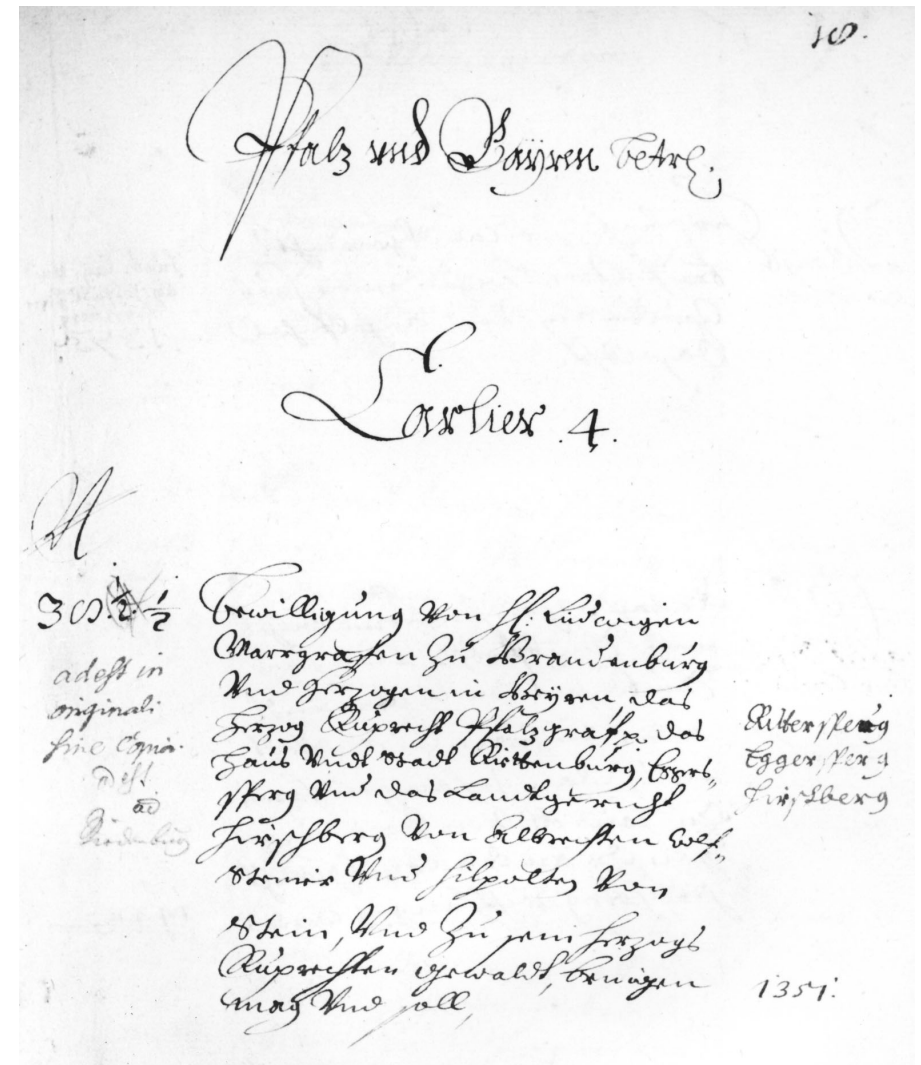 18.
Pfalz vnd Bayren betrl.
Carlier 4.
N
38. ½ ½
adest in
originali
sine Copia.
adest
ad
Riedenburg
Bewilligung Von Hl: Ludwigen
Marrgrafen Zu Brandenburg
Vnd Herzogen in Beyren, das
Herzog Ruprecht Pfalzgraf p. das
Haus Vndt Stadt Rittenburg, Eggers„
sperg Vnd das Landtgericht
Hirschberg Von Albrechten Wolf„
Steiner Vnd Hilpolten Von
Stein, Vnd Zu sein Herzogs
Ruprechten gewaldt, bringen
mag Vnd soll,
Rittersperg
Eggersperg
Hirschberg
1351.